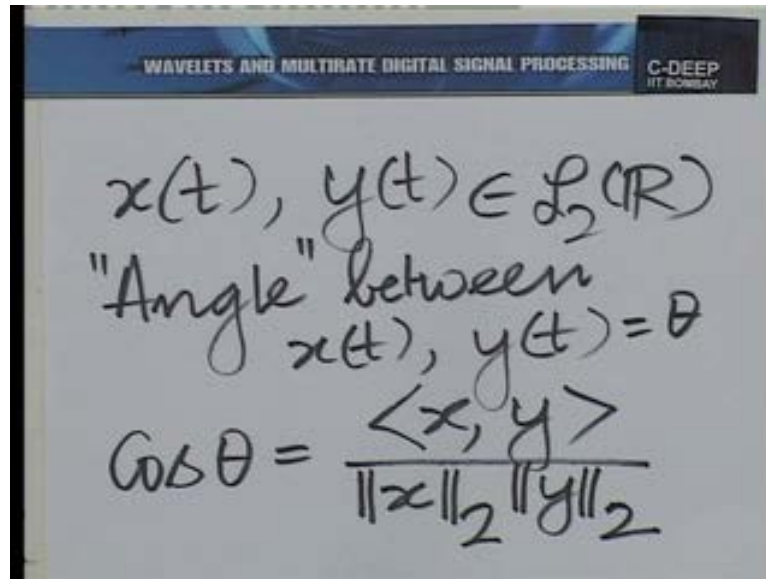 WAVELETS AND MULTIRATE DIGITAL SIGNAL PROCESSING
C-DEEP
IIT BOMBAY
x(t), y(t) ∈ ℒ₂(ℝ)
"Angle" between
x(t), y(t) = θ
Cos θ = <x, y> / ‖x‖₂ ‖y‖₂